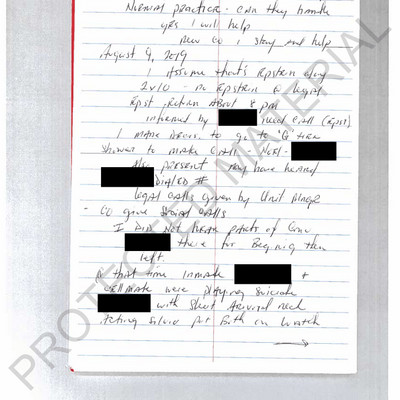 Normal practice - can they handle
yes I will help
New CO I stay and help
August 9, 2019
I assume that's Epstein day
2x10 - no Epstein @ legal
Epst return about 8 pm
informed by need call (Epst)
I make decis. to go to 'G' tier
shower to make call. Noel -
Also present may have heard
Dialed #
legal calls given by Unit Mnge
- CO gave social calls
I Did Not hear parts of Conv
there for Begining then
left.
@ that time inmate +
cellmate were playing suicide
with sheet around neck
Acting put Both on watch
PROTECTED MATERIAL